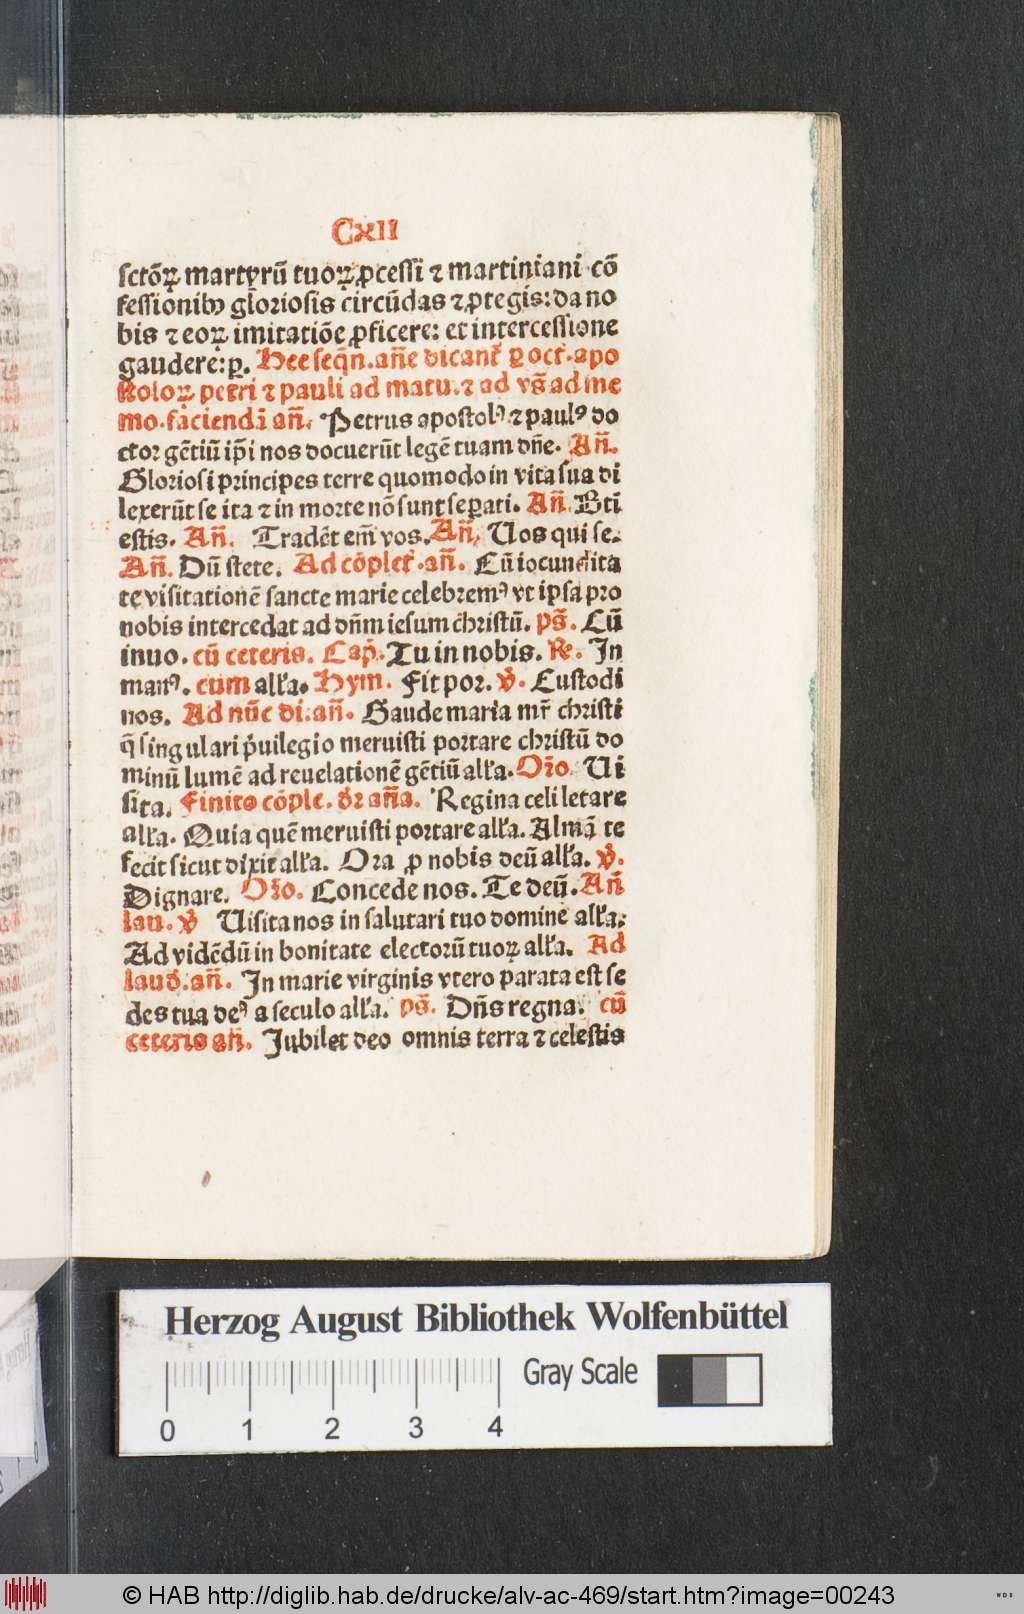 CxII
sctōꝝ martyrū tuoꝝ ꝓcessi ⁊ martiniani cō
fessionibꝰ gloriosis circūdas ⁊ ꝓtegis: da no
bis ⁊ eoꝝ imitatiōe ꝓficere: et intercessione
gaudere: ꝑ. Hee seqn̄. an̄e dicant̄ ꝑ oct̄. apo
stoloꝝ petri ⁊ pauli ad matu. ⁊ ad vs̄ ad me
mo. faciendā an̄. Petrus apostolꝰ ⁊ paulꝰ do
ctor gētiū ip̄i nos docuerūt legē tuam dn̄e. An̄.
Gloriosi principes terre quomodo in vita sua di
lexerūt se ita ⁊ in morte nō sunt seꝑati. An̄. Bti
estis. An̄. Tradēt em̄ vos. An̄. Uos qui se.
An̄. Dū stete. Ad cōplet̄. an̄. Cū iocundita
te visitationē sancte marie celebremꝰ vt ipsa pro
nobis intercedat ad dn̄m iesum christū. ps̄. Cū
inuo. cū ceteris. Cap̄. Tu in nobis. ꝶ. In
manꝰ. cum alľa. Hym. Fit por. ꝟ. Custodi
nos. Ad nūc di. an̄. Gaude maria mr̄ christi
q̄ singulari p̄uilegio meruisti portare christū do
minū lumē ad reuelationē gētiū alľa. Or̄o. Ui
sita. Finito cōple. dr̄ an̄a. Regina celi letare
alľa. Quia quē meruisti portare alľa. Almā te
fecit sicut dixit alľa. Ora ꝓ nobis deū alľa. ꝟ.
Dignare. Or̄o. Concede nos. Te deū. An̄
lau. ꝟ Uisita nos in salutari tuo domine alľa.
Ad vidēdū in bonitate electorū tuoꝝ alľa. Ad
laud̄. an̄. In marie virginis vtero parata est se
des tua deꝰ a seculo alľa. ps̄. Dn̄s regna. cū
ceteris an̄. Jubilet deo omnis terra ⁊ celestis
Herzog August Bibliothek Wolfenbüttel
Gray Scale
0 1 2 3 4
© HAB http://diglib.hab.de/drucke/alv-ac-469/start.htm?image=00243